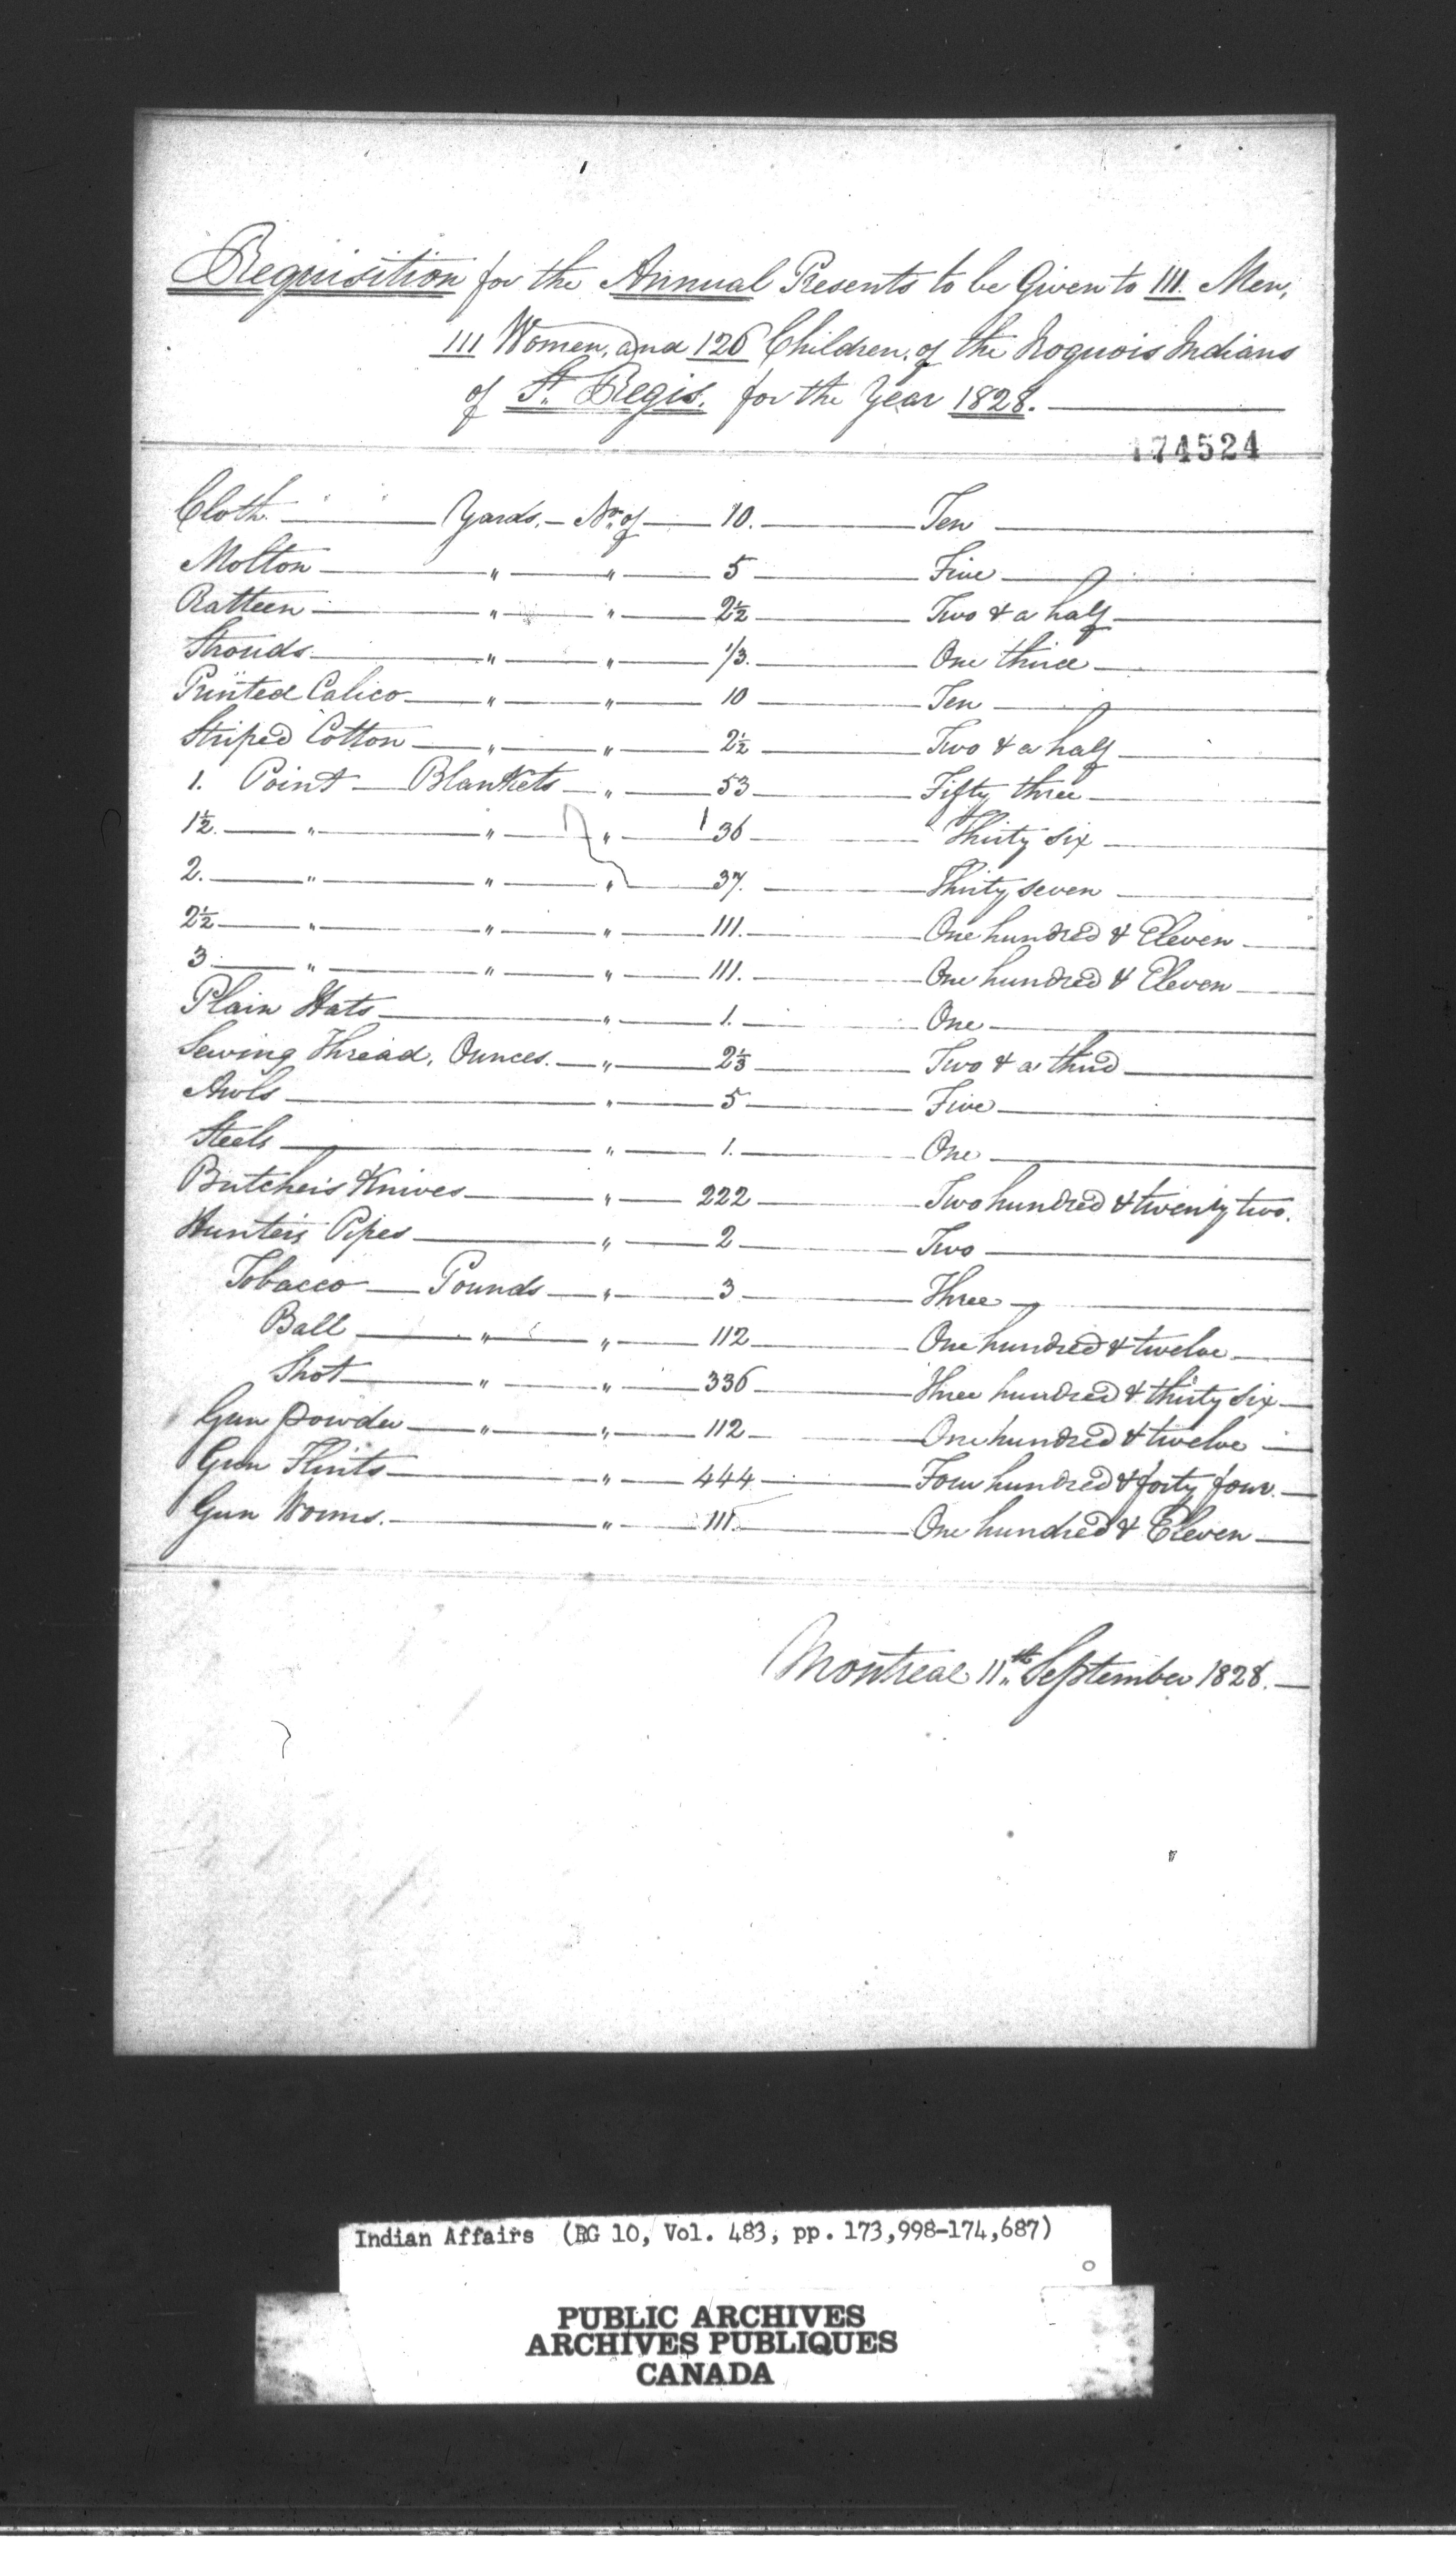 Requisition for the Annual Presents to be Given to 111. Men,
111 Women, and 126 Children, of the Iroquois Indians
of St. Regis. for the Year 1828.
174524
Cloth. Yards. Nr. of 10. Ten
Molton " " 5 Five
Ratteen " " 2½ Two & a half
Strouds " " 1/3. One third
Printed Calico " " 10 Ten
Striped Cotton " " 2½ Two & a half
1. Point Blankets " 53 Fifty three
1½. " " " 36 Thirty six
2. " " " 37. Thirty seven
2½ " " " 111. One hundred & Eleven
3 " " " 111. One hundred & Eleven
Plain Hats " 1. One
Sewing Thread, Ounces. " 2⅓ Two & a third
Awls " 5 Five
Steels " 1. One
Butcher's Knives " 222 Two hundred & twenty two.
Hunter's Pipes " 2 Two
Tobacco Pounds " 3 Three
Ball " " 112 One hundred & twelve
Shot " " 336 Three hundred & thirty six
Gun powder " " 112 One hundred & twelve
Gun Flints " 444 Four hundred & forty four.
Gun Worms. " 111. One hundred & Eleven
Montreal 11th September 1828.
Indian Affairs (RG 10, Vol. 483, pp. 173,998-174,687)
PUBLIC ARCHIVES
ARCHIVES PUBLIQUES
CANADA